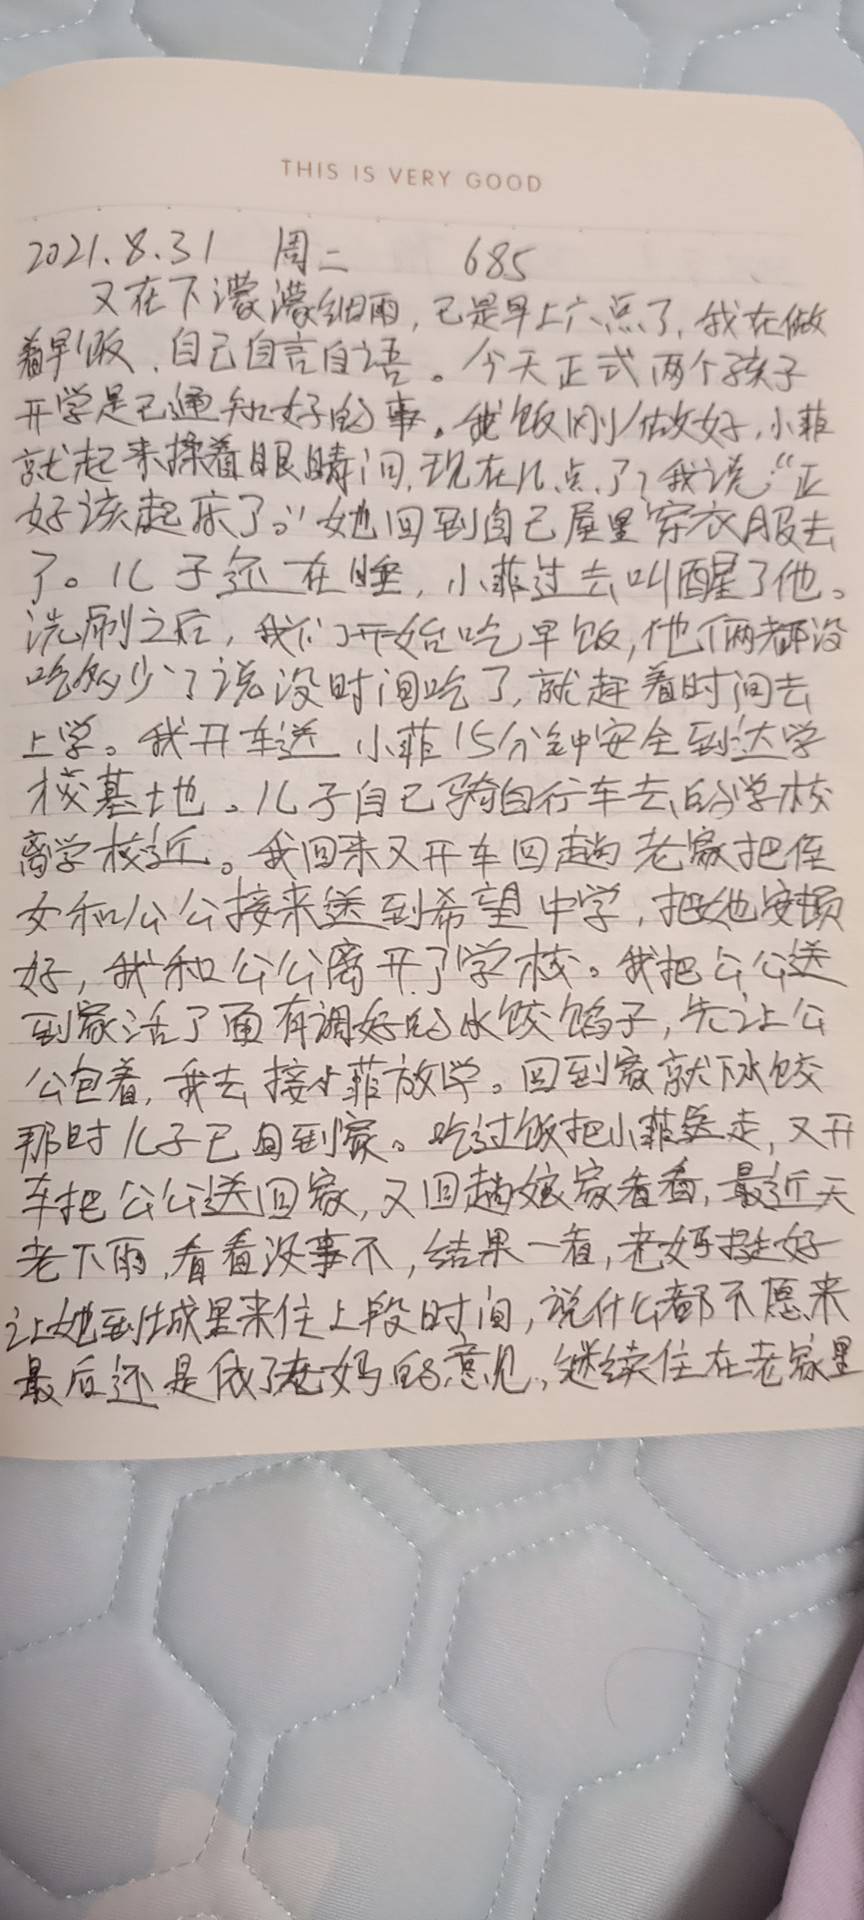 THIS IS VERY GOOD
2021.8.31 周二 685
又在下濛濛细雨,已是早上六点了,我在做
着早饭,自己自言自语。今天正式两个孩子
开学是已通知好的事。我饭刚做好,小菲
就起来揉着眼睛问,现在几点了?我说:“正
好该起床了。”她回到自己屋里穿衣服去
了。儿子还在睡,小菲过去叫醒了他。
洗刷之后,我们开始吃早饭,他俩都没
吃多少了说没时间吃了,就赶着时间去
上学。我开车送小菲15分钟安全到达学
校基地。儿子自己骑自行车去的学校
离学校近。我回来又开车回趟老家把侄
女和公公接来送到希望中学,把她安顿
好,我和公公离开了学校。我把公公送
到家活了面有调好的水饺馅子,先让公
公包着,我去接小菲放学。回到家就下水饺
那时儿子已回到家。吃过饭把小菲送走,又开
车把公公送回家,又回趟娘家看看,最近天
老下雨,看看没事不,结果一看,老妈挺好
让她到城里来住上段时间,说什么都不愿来
最后还是依了老妈的意见,继续住在老家里